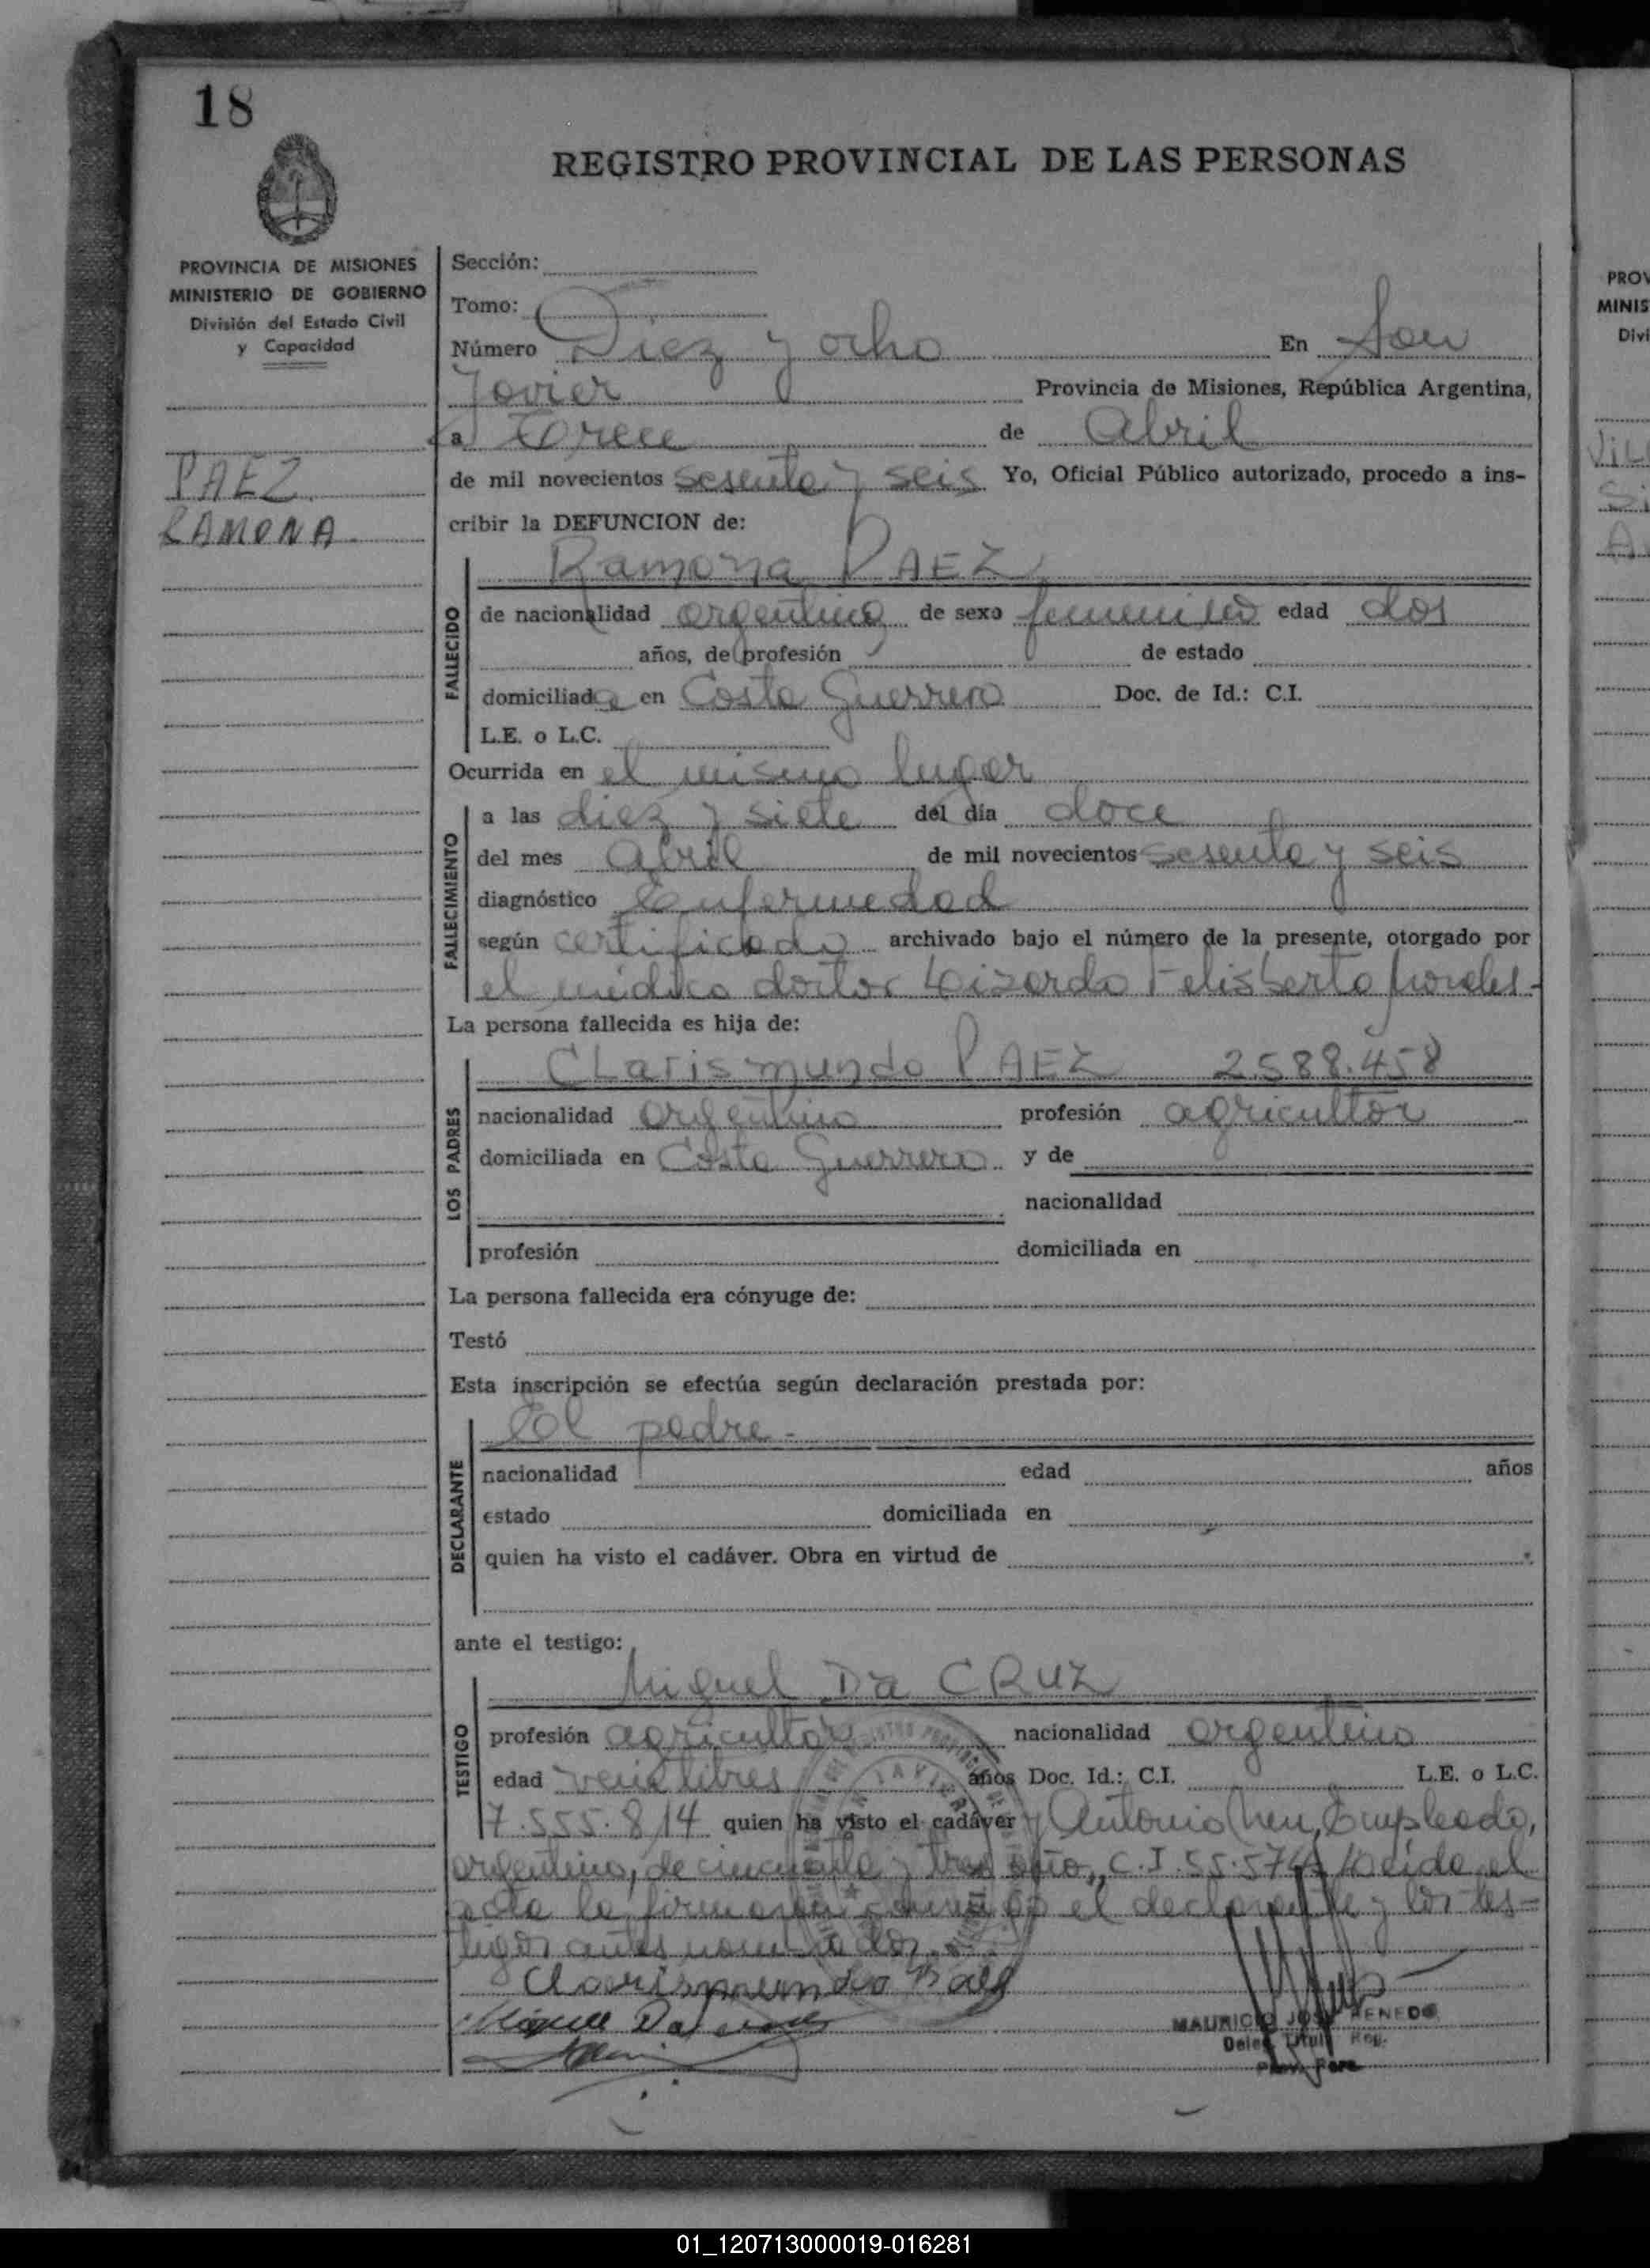 18
REGISTRO PROVINCIAL DE LAS PERSONAS
PROVINCIA DE MISIONES
MINISTERIO DE GOBIERNO
División del Estado Civil
y Capacidad
PAEZ
RAMONA
Sección:
Tomo:
Número Diez y ocho En San
Javier Provincia de Misiones, República Argentina,
a Trece de Abril
de mil novecientos sesenta y seis Yo, Oficial Público autorizado, procedo a ins-
cribir la DEFUNCION de:
Ramona PAEZ
FALLECIDO
de nacionalidad argentina de sexo femenino edad dos
años, de profesión de estado
domiciliada en Costa Guerrero Doc. de Id.: C.I.
L.E. o L.C.
Ocurrida en el mismo lugar
FALLECIMIENTO
a las diez y siete del día doce
del mes Abril de mil novecientos sesenta y seis
diagnóstico Enfermedad
según certificado archivado bajo el número de la presente, otorgado por
el médico doctor Lizardo Felisberto
La persona fallecida es hija de:
LOS PADRES
Clarismundo PAEZ 2.588.458
nacionalidad argentino profesión agricultor
domiciliada en Costa Guerrero y de
nacionalidad
profesión domiciliada en
La persona fallecida era cónyuge de:
Testó
Esta inscripción se efectúa según declaración prestada por:
DECLARANTE
El padre.-
nacionalidad edad años
estado domiciliada en
quien ha visto el cadáver. Obra en virtud de
ante el testigo:
TESTIGO
Miguel Da CRUZ
profesión agricultor nacionalidad argentino
edad veintitres años Doc. Id.: C.I. L.E. o L.C.
7.555.814 quien ha visto el cadáver y Antonio Empleado,
argentino, de cincuenta y tres año, C.I. 55.574 Leída el
acta la firman el declarante y los tes-
tigos antes nombrados.
Clarismundo Paez
Miguel Da Cruz
MAURICIO JOSE
Titul Reg.
Prov. Pers
PROV
MINIS
Divi
VIL
01_120713000019-016281